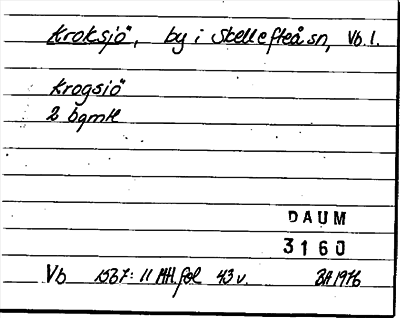 Kroksjö, by i Skellefteå sn, Vb. l.
Krogsiö
2 bgmH
DAUM
3160
Vb 1567: 11 MH. fol 43 v. BH 1976